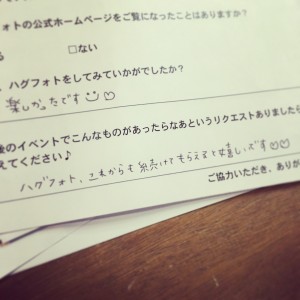 ォトの公式ホームページをご覧になったことはありますか?
る □ない
、ハグフォトをしてみていかがでしたか?
楽しかったです☺♡
後のイベントでこんなものがあったらなあというリクエストありました
えてください♪
ハグフォト、これからも続けてもらえると嬉しいです♡♡
ご協力いただき、あり